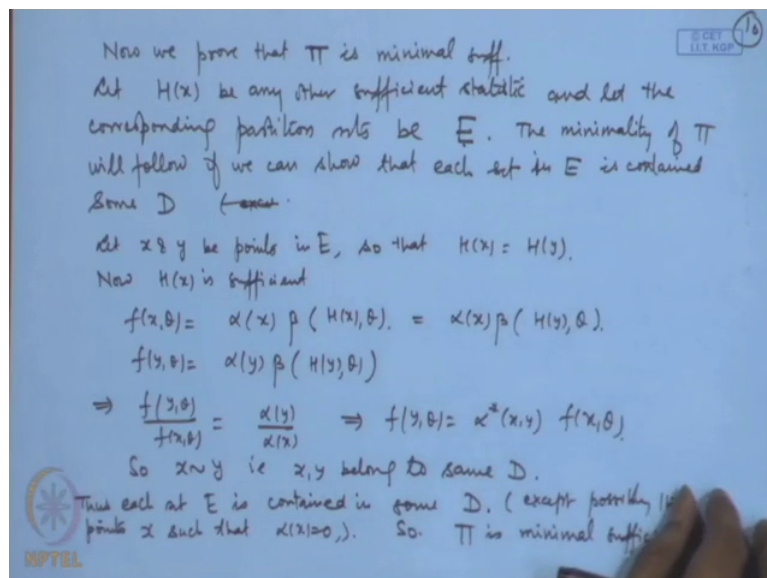 10
© CET
I.I.T. KGP
Now we prove that Π is minimal suff.
Let H(x) be any other sufficient statistic and let the
corresponding partition sets be E. The minimality of Π
will follow if we can show that each set in E is contained
some D
Let x & y be points in E, so that H(x) = H(y).
Now H(x) is sufficient
f(x,θ) = α(x) β(H(x),θ). = α(x) β(H(y),θ).
f(y,θ) = α(y) β(H(y),θ)
⇒ f(y,θ)/f(x,θ) = α(y)/α(x) ⇒ f(y,θ) = α*(x,y) f(x,θ).
So x~y ie x,y belong to same D.
Thus each set E is contained in some D. (except possibly
points x such that α(x)=0,). So. Π is minimal
NPTEL